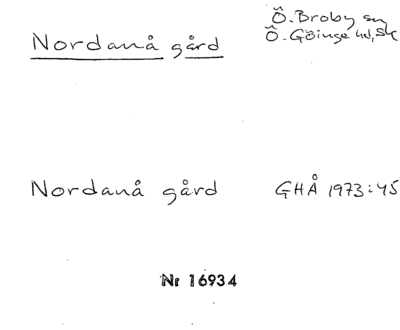 Nordanå gård
Ö. Broby sn
Ö. Göinge hd, Sk
Nordanå gård
GHÅ 1973:45
Nr 16934